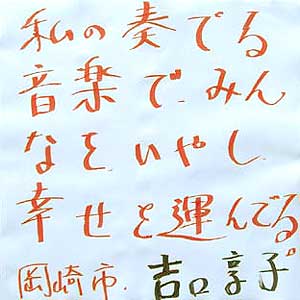 私の奏でる
音楽で、みん
なを、いやし、
幸せを運んでる。
岡崎市、吉口享子